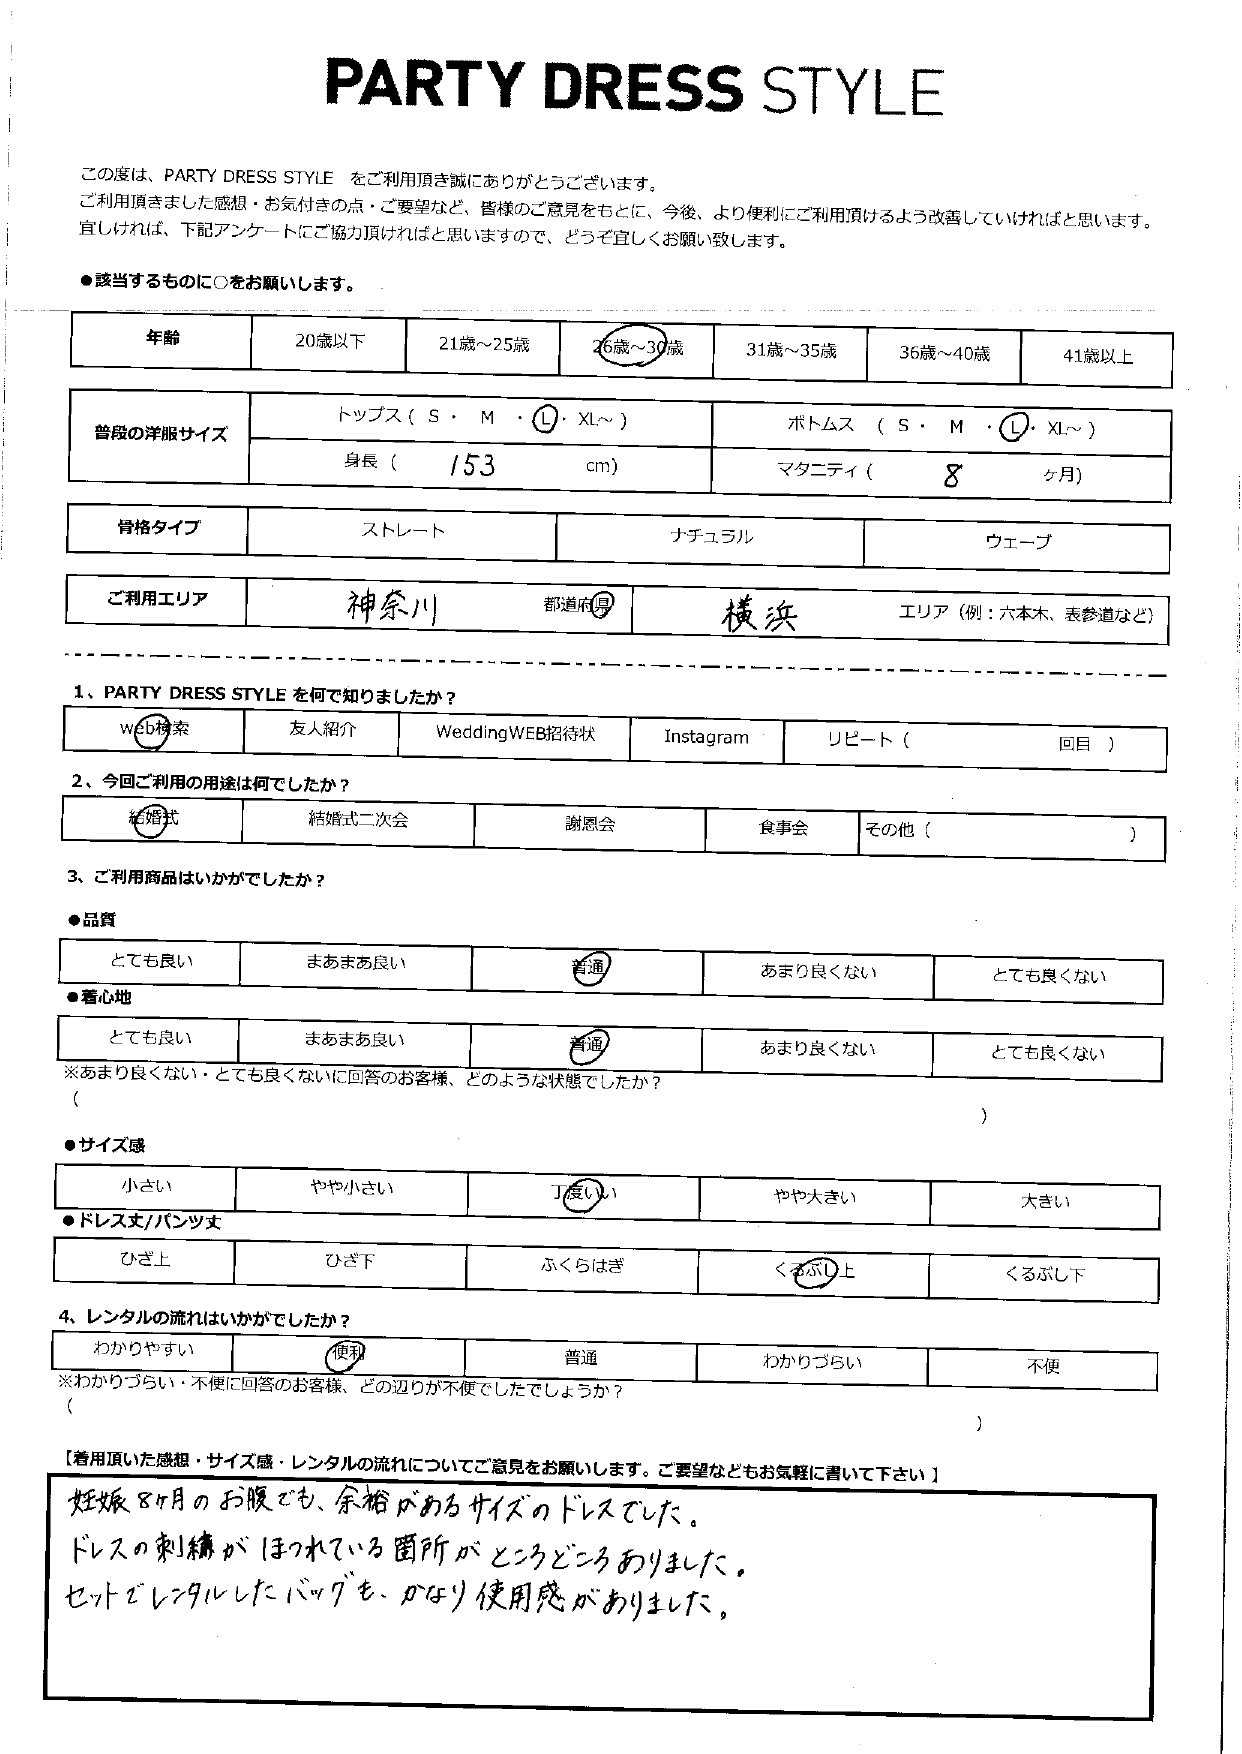 PARTY DRESS STYLE
この度は、PARTY DRESS STYLE をご利用頂き誠にありがとうございます。
ご利用頂きました感想・お気付きの点・ご要望など、皆様のご意見をもとに、今後、より便利にご利用頂けるよう改善していければと思います。
宜しければ、下記アンケートにご協力頂ければと思いますので、どうぞ宜しくお願い致します。
●該当するものに○をお願いします。
年齢 20歳以下 21歳～25歳 26歳～30歳 31歳～35歳 36歳～40歳 41歳以上
普段の洋服サイズ トップス ( S ・ M ・ L ・ XL～ ) ボトムス ( S ・ M ・ L ・ XL～ )
身長 ( 153 cm) マタニティ ( 8 ヶ月)
骨格タイプ ストレート ナチュラル ウェーブ
ご利用エリア 神奈川 都道府県 横浜 エリア（例：六本木、表参道など）
1、PARTY DRESS STYLE を何で知りましたか？
web検索 友人紹介 WeddingWEB招待状 Instagram リピート ( 回目 )
2、今回ご利用の用途は何でしたか？
結婚式 結婚式二次会 謝恩会 食事会 その他 ( )
3、ご利用商品はいかがでしたか？
●品質
とても良い まあまあ良い 普通 あまり良くない とても良くない
●着心地
とても良い まあまあ良い 普通 あまり良くない とても良くない
※あまり良くない・とても良くないに回答のお客様、どのような状態でしたか？
( )
●サイズ感
小さい やや小さい 丁度いい やや大きい 大きい
●ドレス丈/パンツ丈
ひざ上 ひざ下 ふくらはぎ くるぶし上 くるぶし下
4、レンタルの流れはいかがでしたか？
わかりやすい 便利 普通 わかりづらい 不便
※わかりづらい・不便に回答のお客様、どの辺りが不便でしたでしょうか？
( )
【着用頂いた感想・サイズ感・レンタルの流れについてご意見をお願いします。ご要望などもお気軽に書いて下さい】
妊娠8ヶ月のお腹でも、余裕があるサイズのドレスでした。
ドレスの刺繍がほつれている箇所がところどころありました。
セットでレンタルしたバッグも、かなり使用感がありました。